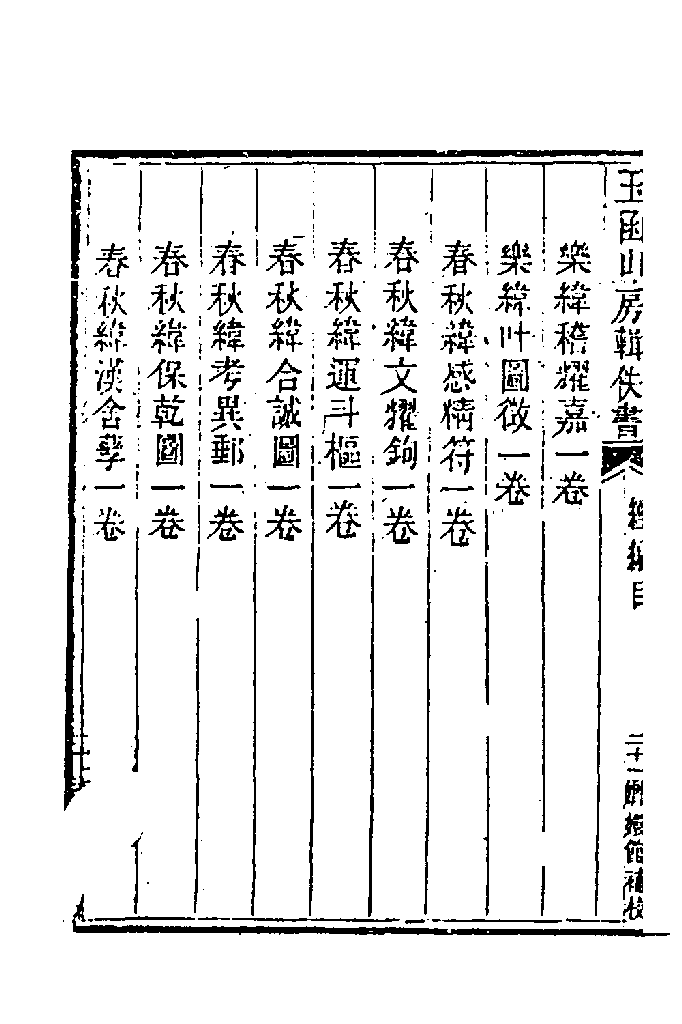 玉函山房輯佚書
經編目
二十一
嫏嬛館補校
樂緯稽耀嘉一卷
樂緯叶圖徵一卷
春秋緯感精符一卷
春秋緯文耀鉤一卷
春秋緯運斗樞一卷
春秋緯合誠圖一卷
春秋緯考異郵一卷
春秋緯保乾圖一卷
春秋緯漢含孳一卷